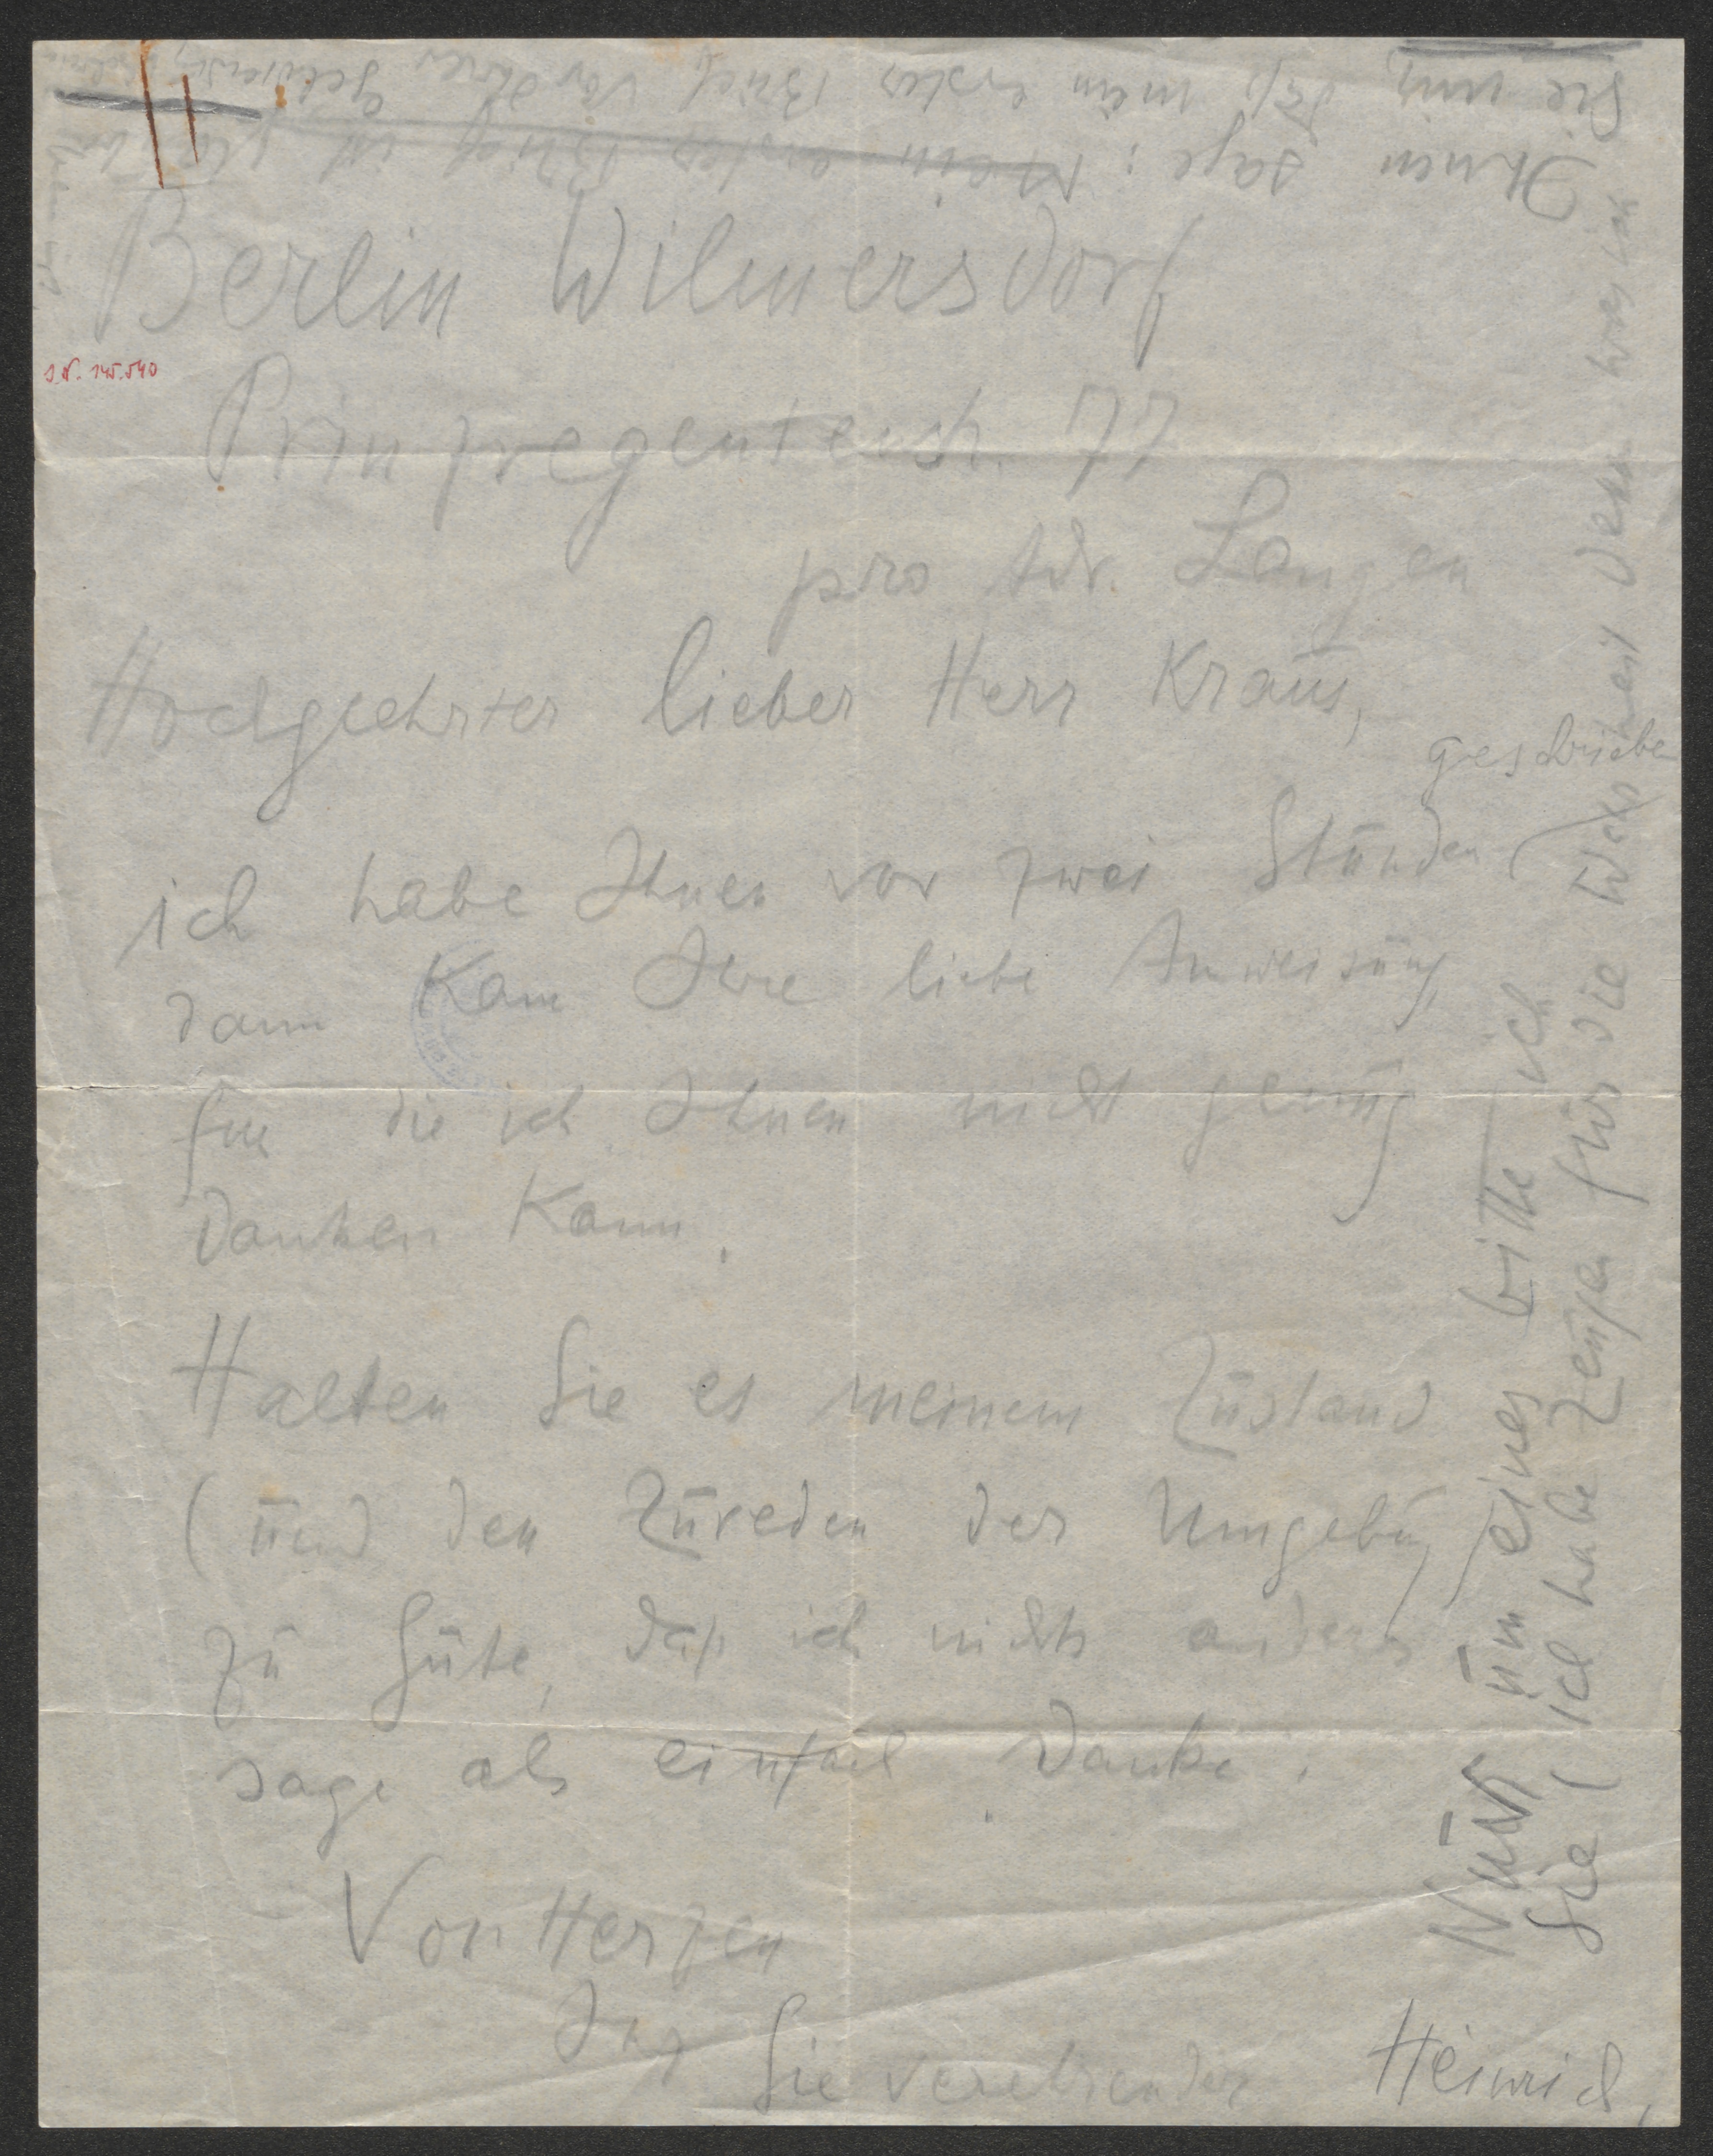 Berlin Wilmersdorf
J.N. 145.540
Prinzregentenstr. 77
pro Adr. Langen
Hochgeehrter lieber Herr Kraus,
geschrieben
ich habe Ihnen vor zwei Stunden
dann kam Ihre liebe Anweisung
für die ich Ihnen nicht genug
danken kann.
Halten Sie es meinem Zustand
(und den Zureden der Umgebung)
zu Gute, daß ich nichts anderes
sage als einfach Danke.
Von Herzen
Ihr
Sie verehrender Heinrich,
Nur um eines bitte ich
Sie (ich habe Zeugen für die Wahrheit dessen was ich
Ihnen sage: Mein erster Brief ist
Sie mir, daß mein erster Brief vor Ihrer